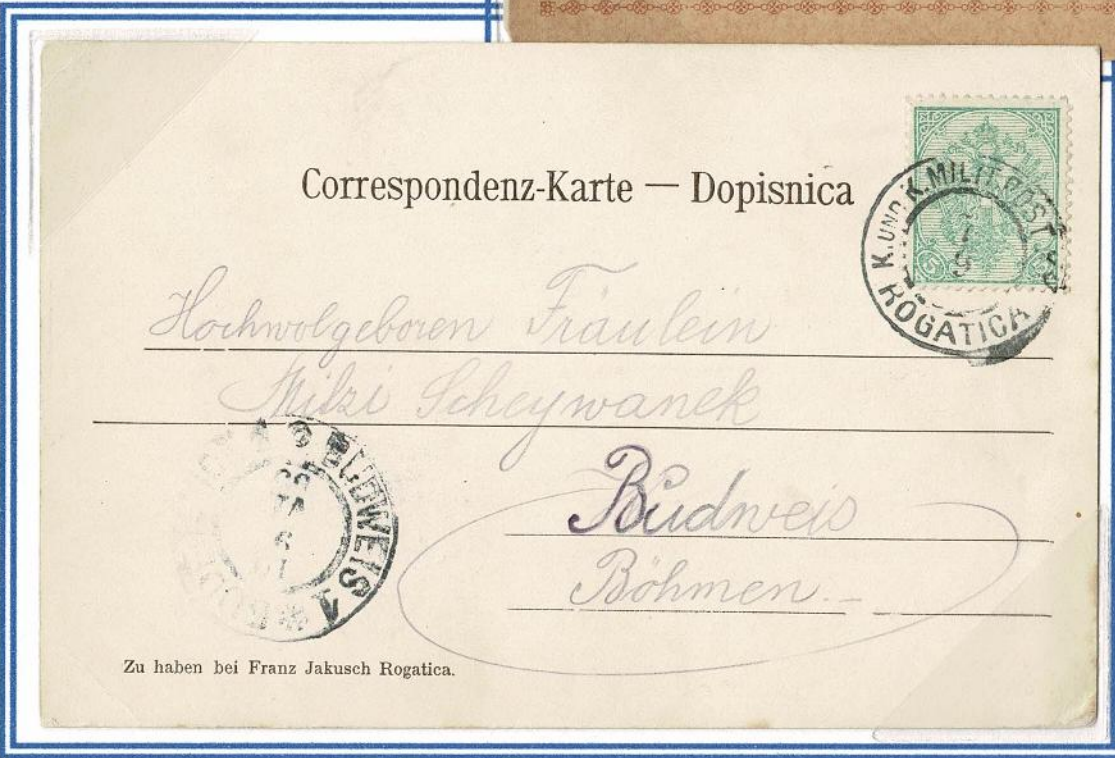 Correspondenz-Karte — Dopisnica
K. UND K. MILIT. POST
ROGATICA
5
Hochwolgeboren Fräulein
Scheywanek
Budweis
Böhmen.
BUDWEIS 1
Zu haben bei Franz Jakusch Rogatica.